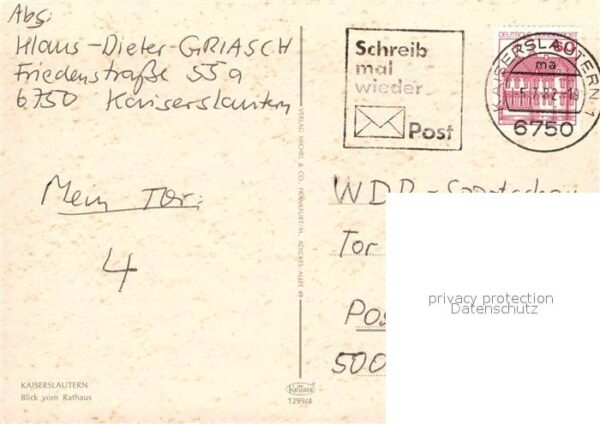 Abs:
Klaus-Dieter-GRIASCH
Friedenstraße 55a
6750 Kaiserslautern
Schreib
mal
wieder
Post
DEUTSCHE BUNDESPOST
60
KAISERSLAUTERN 1
ma
6750
VERLAG MICHEL & CO., FRANKFURT/M., ADICKES-ALLEE
Mein Tor:
4
WDR-Sportschau
Tor
Pos
500
privacy protection
Datenschutz
KAISERSLAUTERN
Blick vom Rathaus
Krüger
1299/4